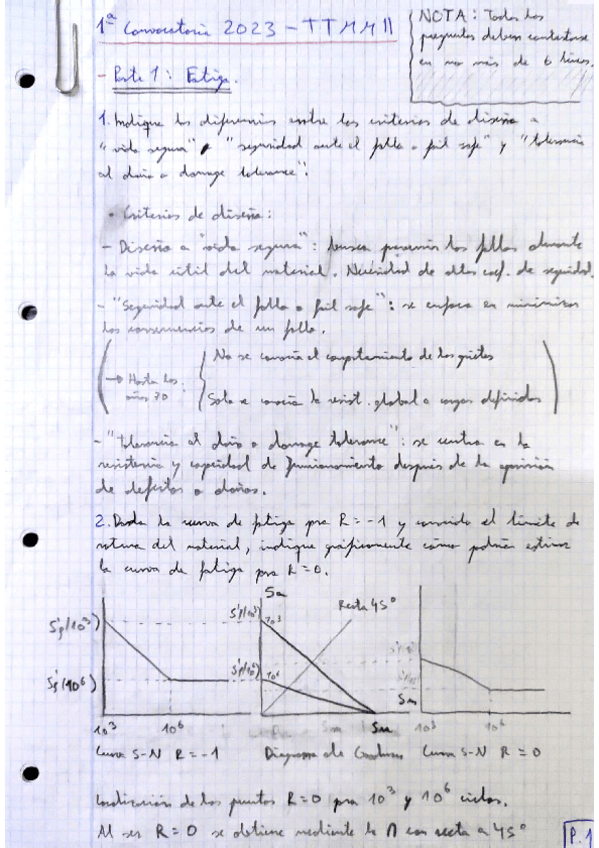 1ª Convocatoria 2023 - TTMMII
NOTA: Todas las
preguntas deben contestarse
en no más de 6 líneas.
- Parte 1: Fatiga.
1. Indique las diferencias entre los criterios de diseño a
"vida segura", "seguridad ante el fallo o fail safe" y "tolerancia
al daño o damage tolerance":
• Criterios de diseño:
- Diseño a "vida segura": busca prevenir los fallos durante
la vida útil del material. Necesidad de altos coef. de seguridad.
- "Seguridad ante el fallo o fail safe": se enfoca en minimizar
las consecuencias de un fallo.
→ Hasta los
años 70
No se conocía el comportamiento de las grietas
Solo se conocía la resist. global a cargas definidas
- "Tolerancia al daño o damage tolerance": se centra en la
resistencia y capacidad de funcionamiento después de la aparición
de defectos o daños.
2. Dada la curva de fatiga para R=-1 y conocido el límite de
rotura del material, indique gráficamente cómo podría estimar
la curva de fatiga para R=0.
Sa
Recta 45°
Sf(10³)
Sf(10³)
10³
Sf(10⁶)
Sf(10⁶)
10⁶
Sm
10³
10⁶
Su
10³
10⁶
Curva S-N R=-1
Diagrama de Goodman
Curva S-N R=0
Localización de los puntos R=0 para 10³ y 10⁶ ciclos.
Al ser R=0 se obtiene mediante la ∩ con recta a 45°
P.1